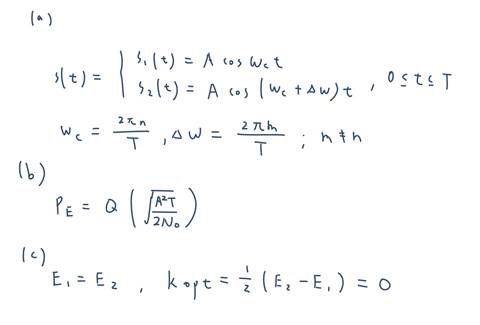 (a)
s(t) = { s₁(t) = A cos ω_c t
s₂(t) = A cos (ω_c + Δω) t , 0 ≤ t ≤ T
ω_c = 2πn/T , Δω = 2πm/T ; m ≠ n
(b)
P_E = Q ( √(A²T/2N₀) )
(c)
E₁ = E₂ , k opt = ½ (E₂ - E₁) = 0